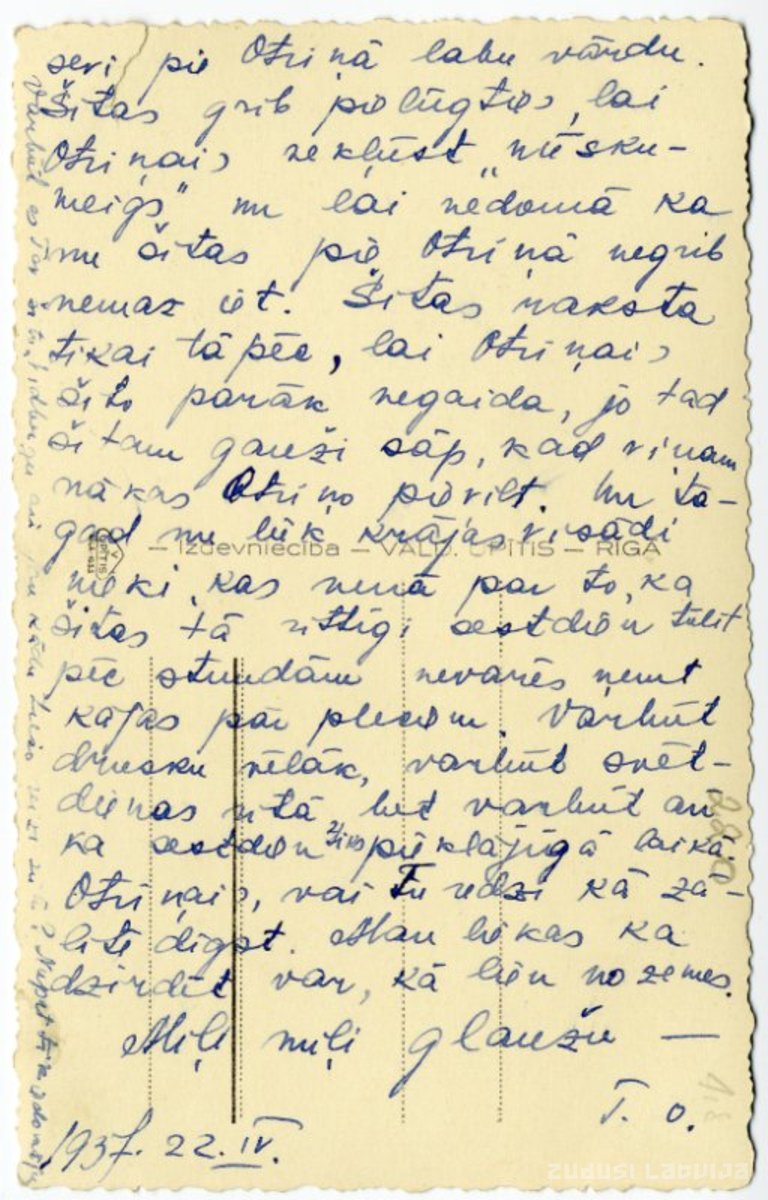 sevi pie Otriņā labu vārdu.
Šitas grib pielūgties, lai
Otriņais nekļūst „mēsku-
meigs” nu lai nedomā ka
nu šitas pie Otriņā negrib
nemaz iet. Šitas raksta
tikai tāpēc, lai Otriņais
šito parāk negaida, jo tad
šitam gauži sāp, kad viņam
nākas Otriņo pievilt. Nu ta-
gad nu liek krājas visādi
— Izdevniecība — VALD. UPĪTIS — RĪGA
nieki, kas runā par to, ka
šitas tā rittīgi sestdien tūlit
pēc stundām nevarēs ņemt
kājas pār pleciem. Varbūt
drusku vēlāk, varbūt svēt-
dienas ritā, bet varbūt arī
ka sestdien pieklājīgā laikā.
Otriņais, vai Tu redzi kā zā-
līte dīgst. Man liekas ka
dzirdēt var, kā lien no zemes.
Mīļi mīļi glaužu —
T. O.
1937. 22. IV.
Varbūt es
ZUDUSI LATVIJA